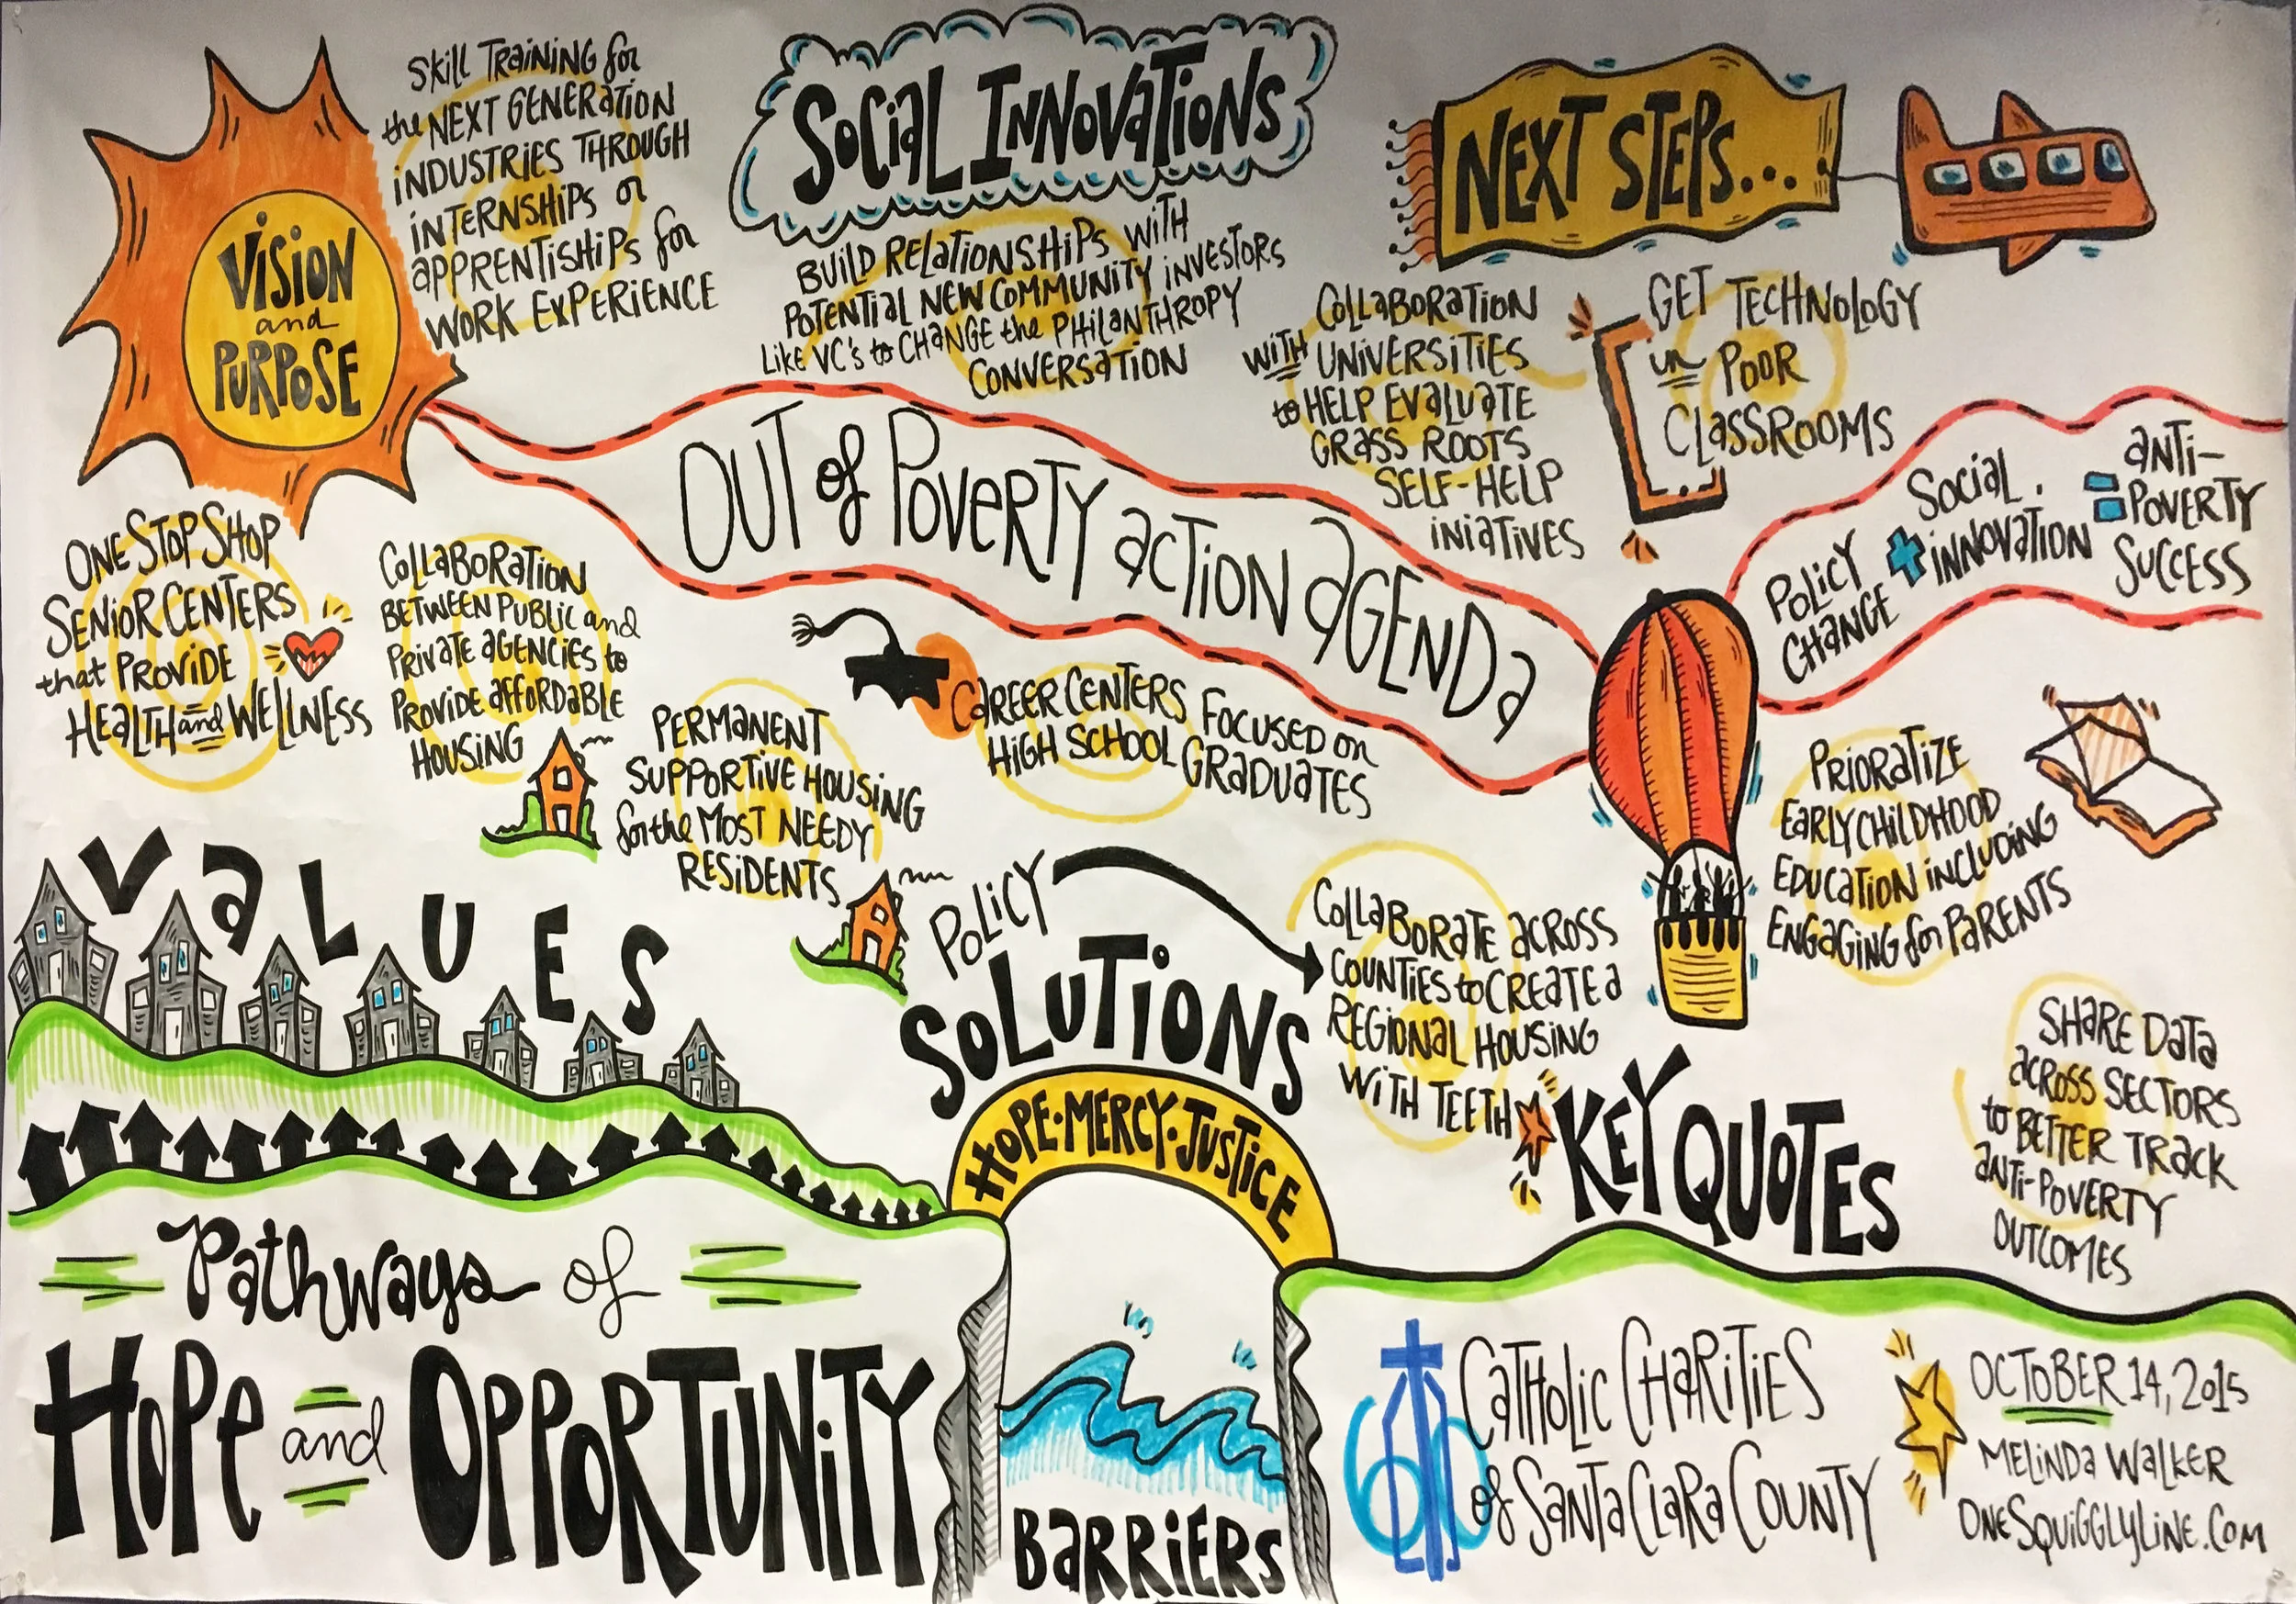 VISION
and
PURPOSE
Skill TRAiNiNG for
the NEXT GENERATION
iNDUSTRiES THROUGH
iNTERNSHiPS or
aPPRENTiSHiPS for
WORK EXPERiENCE
SOCiaL INNOVaTiONS
BUiLD RELaTiONSHiPS WiTH
POTENTiaL NEW COMMUNiTY iNVESTORS
LiKE VC's to CHaNGE the PHiLaNTHROPY
CONVERSaTiON
NEXT STEPS...
COLLaBORaTiON
WiTH UNiVERSiTiES
to HELP EVaLUaTE
GRaSS ROOTS
SELF-HELP
iNiaTiVES
GET TECHNOLOGY
iN POOR
CLaSSROOMS
OUT of POVERTY aCTiON aGENDa
POLiCY
CHaNGE
+
SOCiaL
iNNOVaTiON
=
aNTi-
POVERTY
SUCCESS
ONE STOP SHOP
SENiOR CENTERS
that PROViDE
HEaLTH and WELLNESS
COLLaBORaTiON
BETWEEN PUBLiC and
PRiVaTE aGENCiES to
PROViDE aFFORDaBLE
HOUSiNG
PERMaNENT
SUPPORTiVE HOUSiNG
for the MOST NEEDY
RESiDENTS
CaREER CENTERS FOCUSED on
HiGH SCHOOL GRaDUaTES
PRiORaTiZE
EaRLY CHiLDHOOD
EDUCaTiON iNCLUDiNG
ENGaGiNG for PaRENTS
VaLUES
POLiCY
SOLUTiONS
COLLaBORaTE aCROSS
COUNTiES to CREaTE a
REGiONaL HOUSiNG
WiTH TEETH
HOPE·MERCY·JUSTiCE
KEY QUOTES
SHaRE DaTa
aCROSS SECTORS
to BETTER TRaCK
aNTi-POVERTY
OUTCOMES
Pathways of
HOPe and OPPORTUNiTY
BaRRiERS
60
CaTHOLiC CHaRiTiES
of SaNTa CLaRa COUNTY
OCTOBER 14, 2015
MELiNDa WaLKER
ONESQUiGGLYLiNE.COM